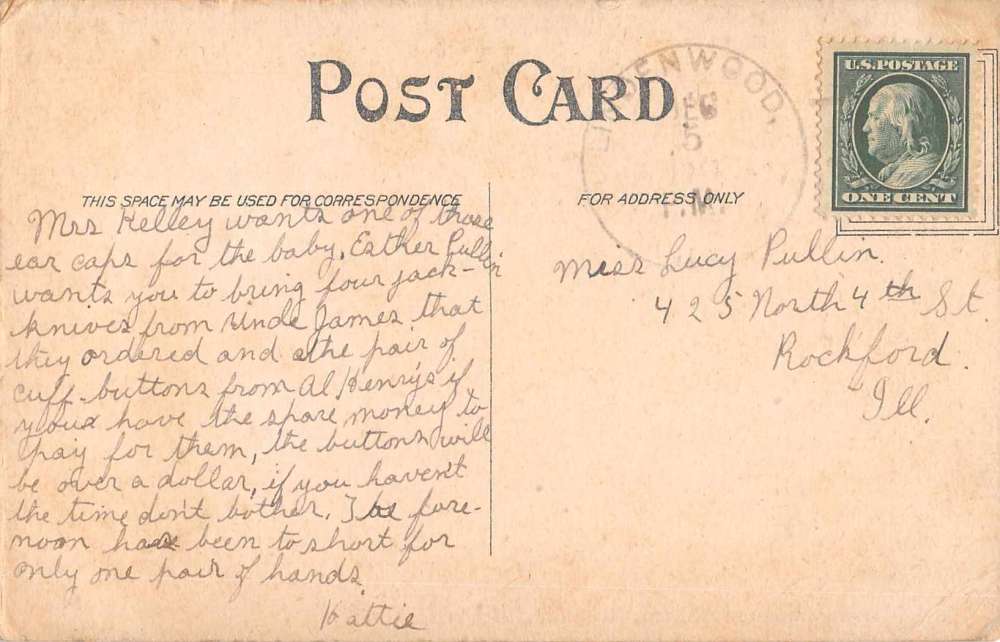 POST CARD
LINDENWOOD,
DEC
5
P.M.
U.S. POSTAGE
ONE CENT
THIS SPACE MAY BE USED FOR CORRESPONDENCE
Mrs Kelley wants one of those
ear caps for the baby. Esther Pullin
wants you to bring four jack-
knives from Uncle James that
they ordered and the pair of
cuff-buttons from Al Henrys if
you have the spare money to
pay for them, the buttons will
be over a dollar, if you havent
the time don't bother. The fore-
noon has been to short for
only one pair of hands.
Hattie
FOR ADDRESS ONLY
Miss Lucy Pullin.
425 North 4th St.
Rockford.
Ill.